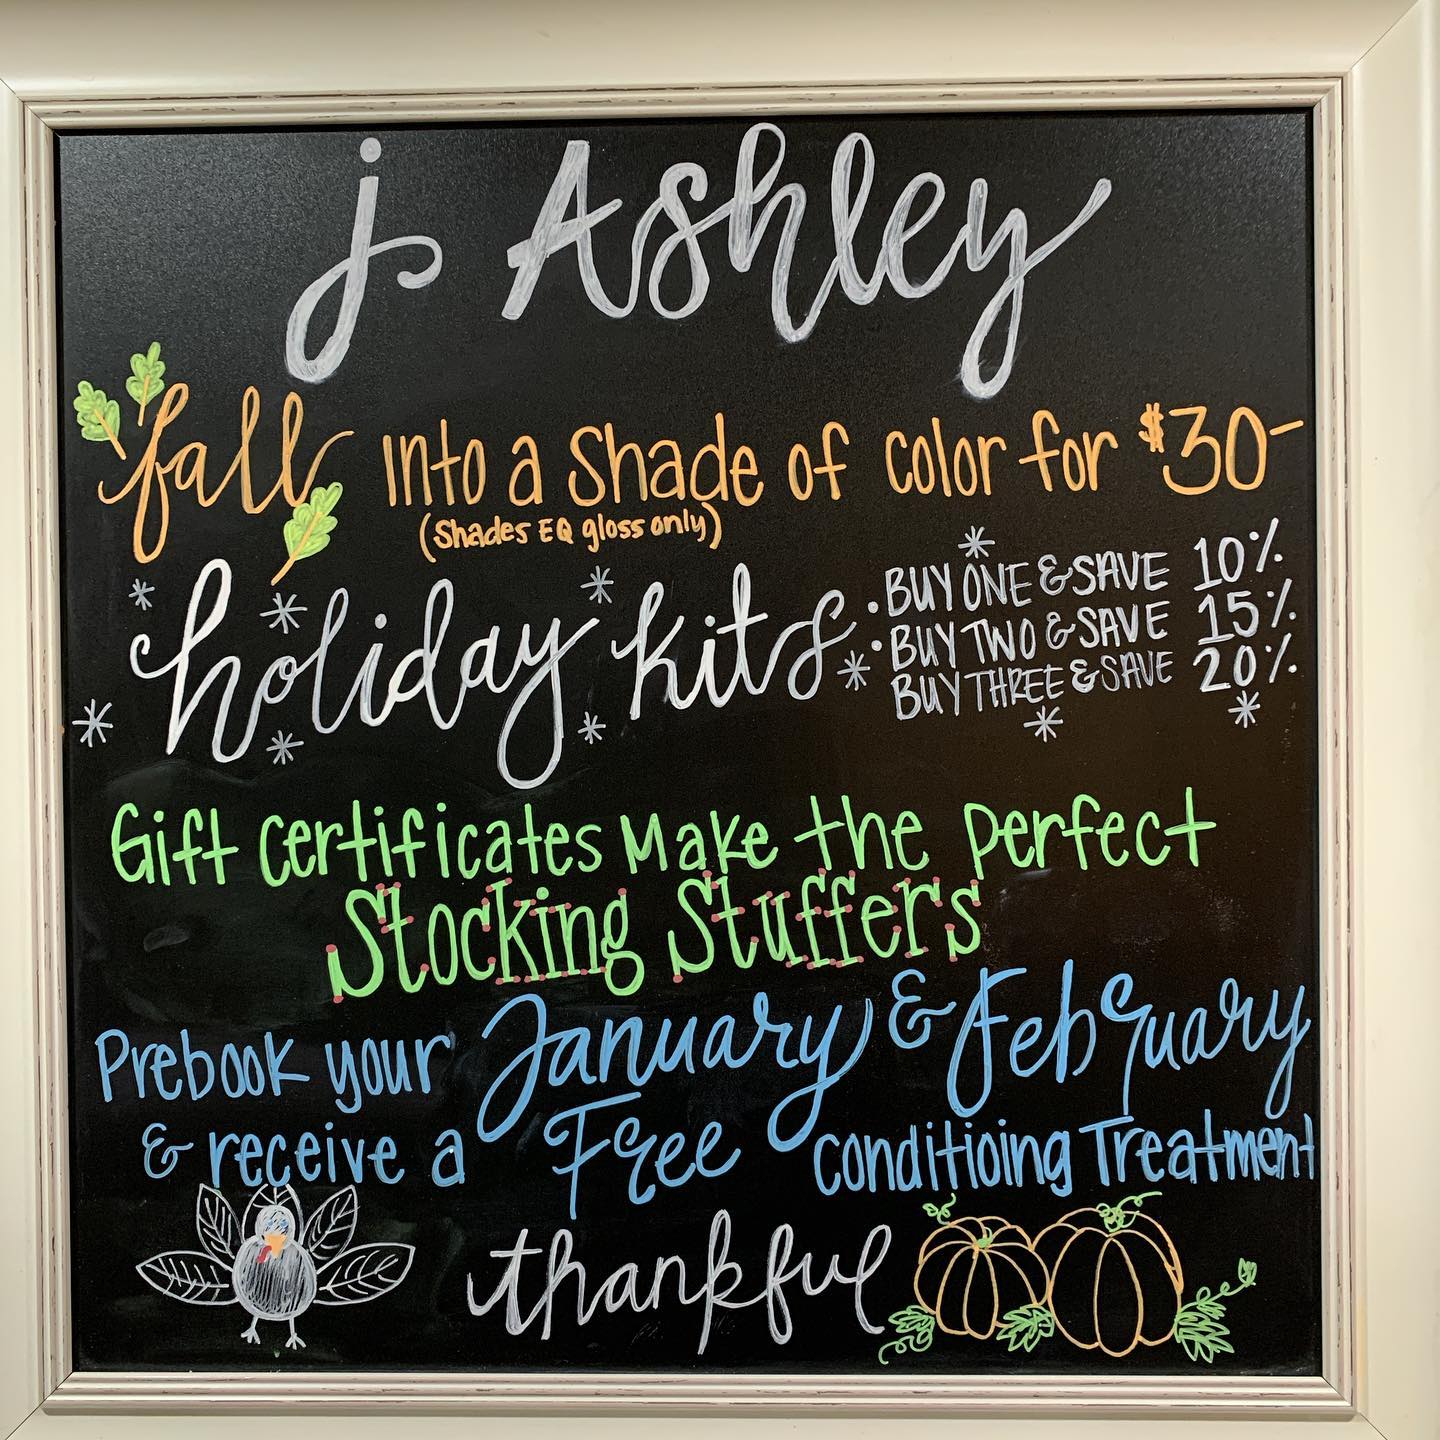 j Ashley
fall into a Shade of color for $30-
(Shades EQ gloss only)
holiday kits
• BUY ONE & SAVE 10%
• BUY TWO & SAVE 15%
BUY THREE & SAVE 20%
Gift Certificates Make the Perfect
Stocking Stuffers
Prebook your January & February
& receive a Free conditioing Treatment
thankful